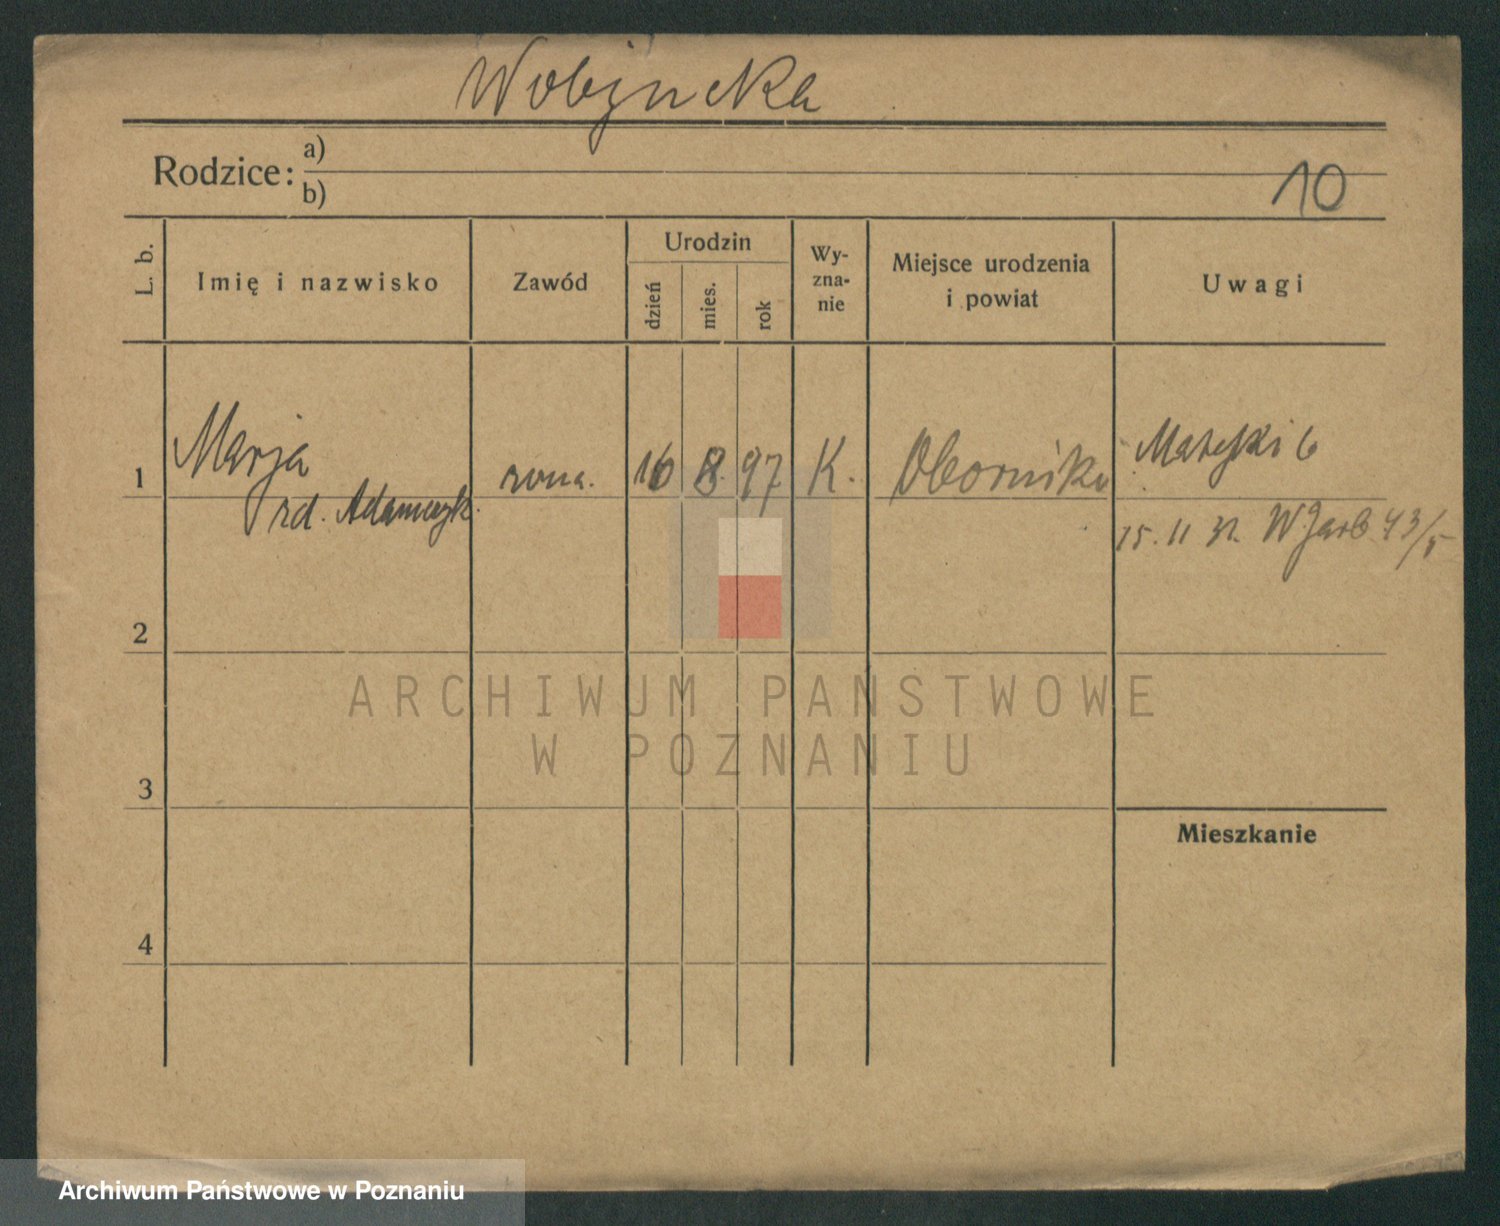 Wobzucka
Rodzice: a)
b)
10
L. b.
Imię i nazwisko
Zawód
Urodzin
dzień
mies.
rok
Wy-
zna-
nie
Miejsce urodzenia
i powiat
Uwagi
1
Marja
zd. Adamczyk.
żona.
16
8
97
K.
Oborniki
Matejki 6
15. 11 31. W. Garb. 43/5
2
3
Mieszkanie
4
ARCHIWUM PAŃSTWOWE
W POZNANIU
Archiwum Państwowe w Poznaniu